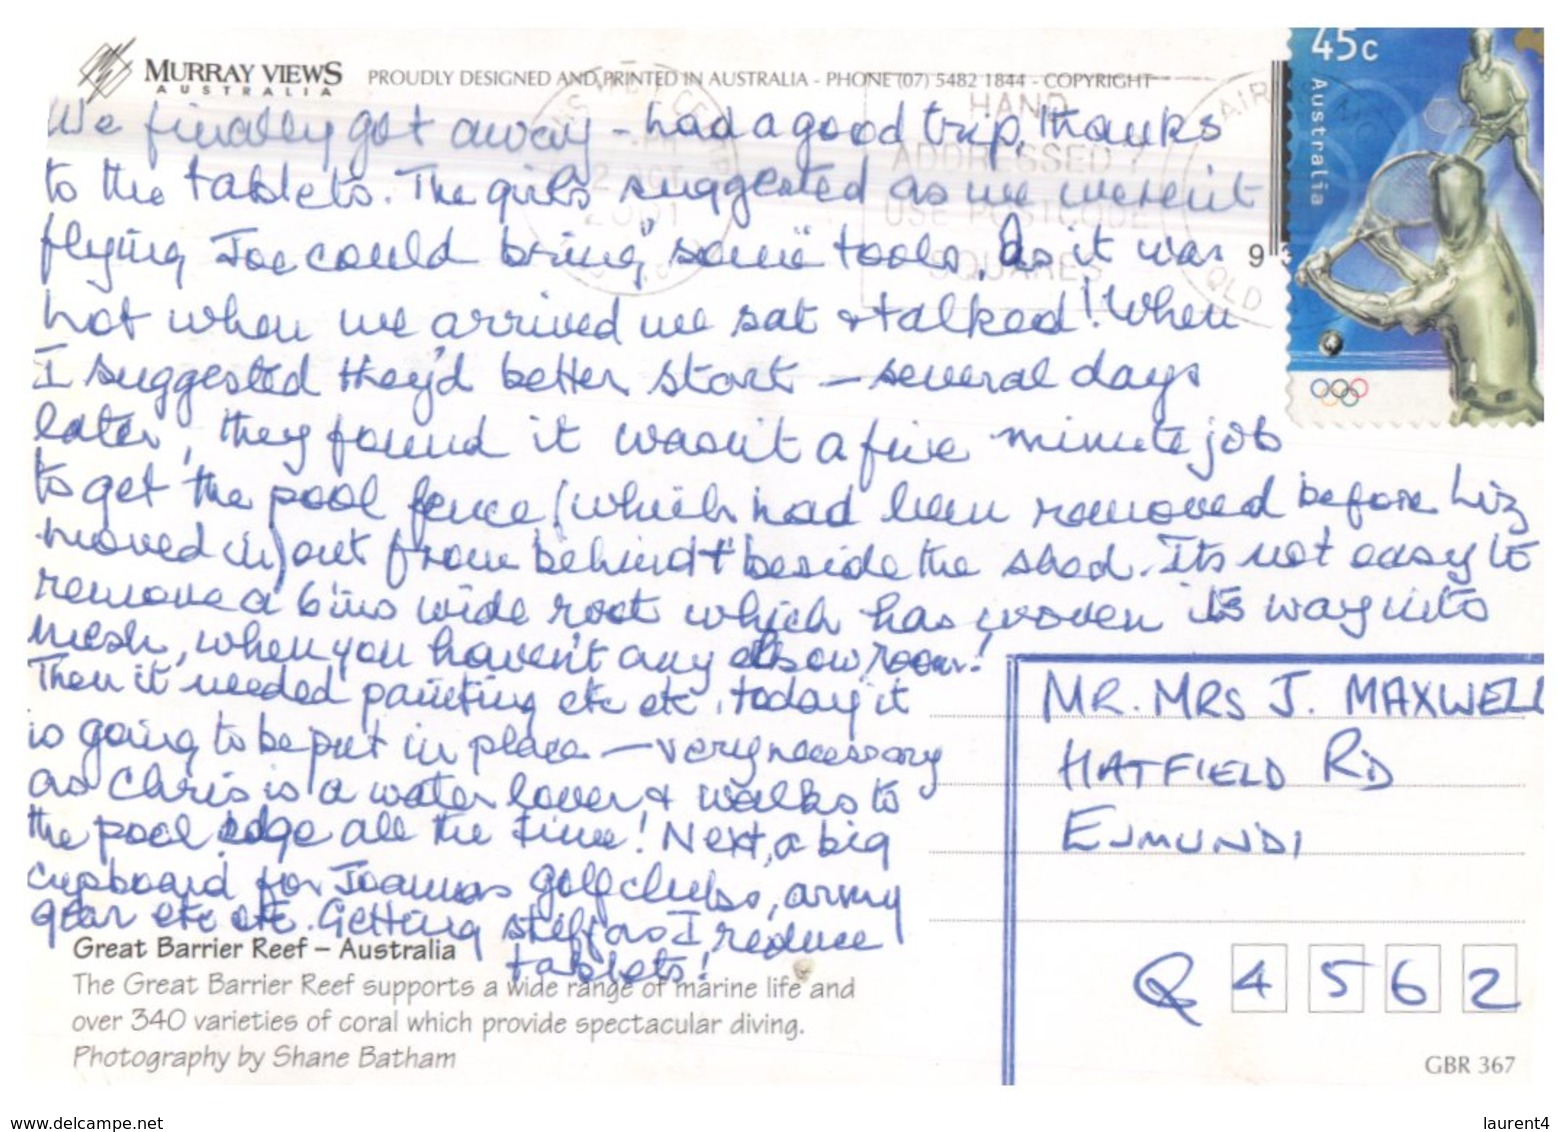 MURRAY VIEWS
AUSTRALIA
PROUDLY DESIGNED AND PRINTED IN AUSTRALIA - PHONE (07) 5482 1844 - COPYRIGHT
45c
Australia
HAND
ADDRESSED?
USE POSTCODE
SQUARES
2 OCT
2001
QLD
9
We finally got away - had a good trip, thanks
to the tablets. The girls suggested as we weren't
flying Joe could bring "some" tools. As it was
hot when we arrived we sat & talked! When
I suggested they'd better start - several days
later, they found it wasn't a five minute job
to get the pool fence (which had been removed before Liz
moved in) out from behind + beside the shed. Its not easy to
remove a 6 ins wide root which has woven its way into
mesh, when you haven't any elbow room!
Then it needed painting etc etc, today it
is going to be put in place - very necessary
as Chris is a water lover & walks to
the pool edge all the time! Next, a big
cupboard for Joannas golf clubs, army
gear etc etc. Getting stiff as I reduce
tablets!
MR. MRS J. MAXWELL
HATFIELD RD
EUMUNDI
Q 4 5 6 2
Great Barrier Reef – Australia
The Great Barrier Reef supports a wide range of marine life and
over 340 varieties of coral which provide spectacular diving.
Photography by Shane Batham
GBR 367
www.delcampe.net
laurent4